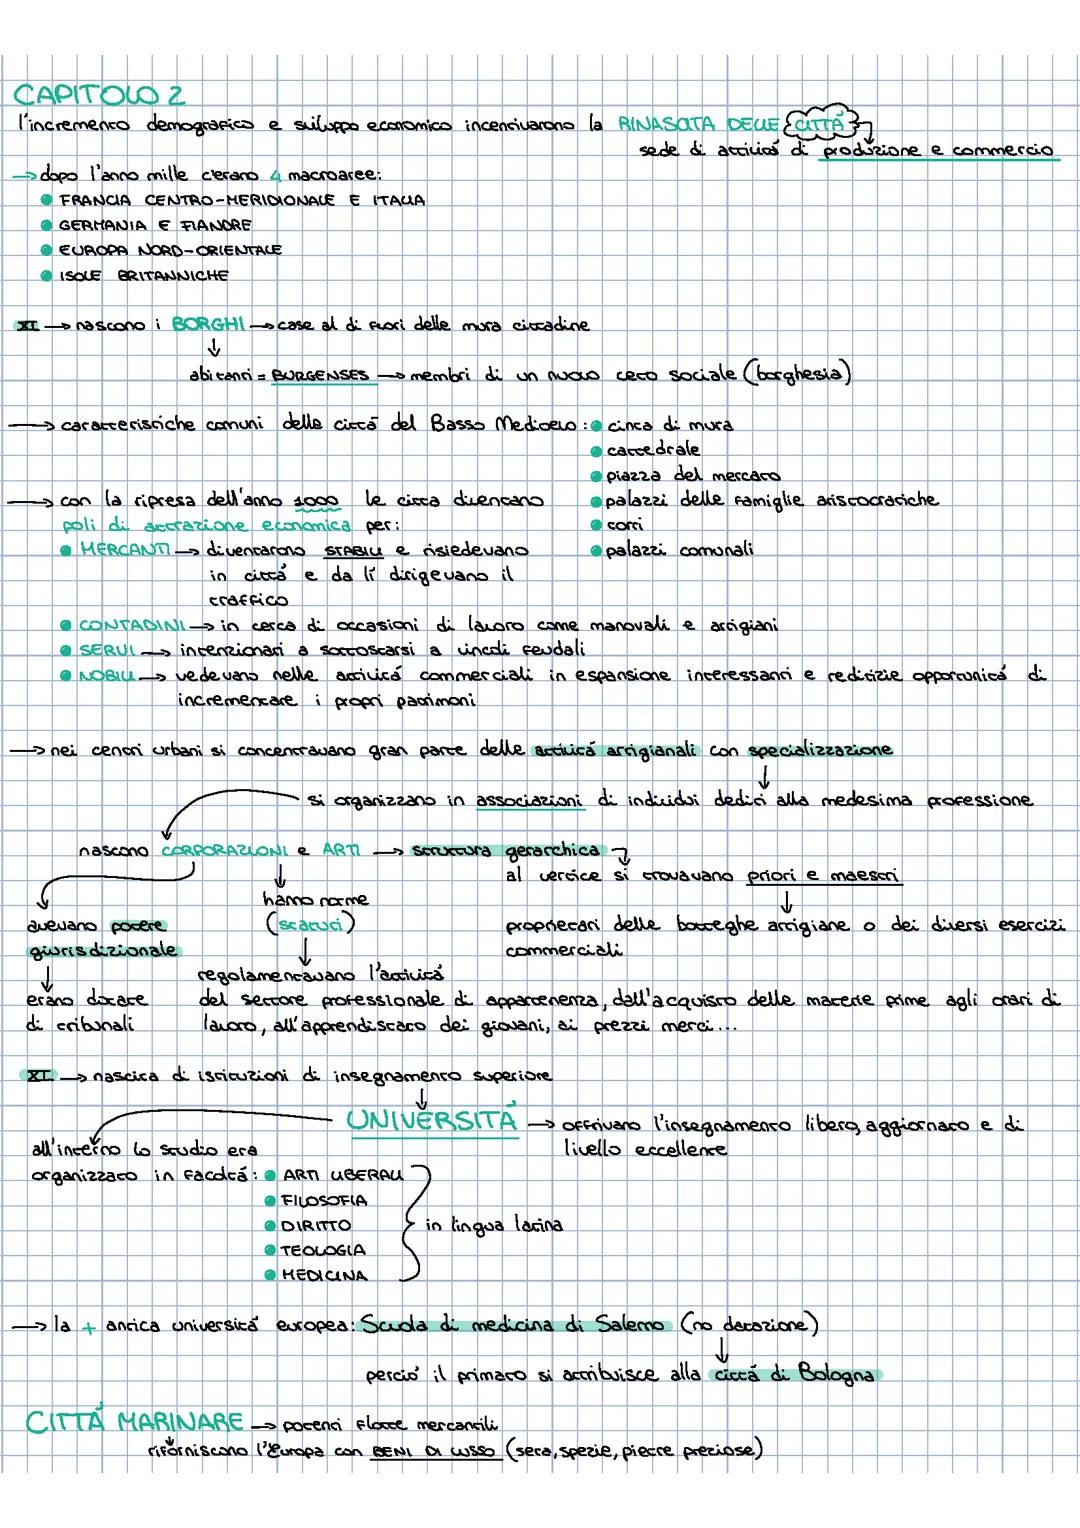 CAPITOLO 2
l'incremento demografico e sviluppo economico incentivarono la RINASCITA DELLE CITTÀ
sede di attività di produzione e commercio
→ dopo l'anno mille c'erano 4 macroaree:
• FRANCIA CENTRO-MERIDIONALE E ITALIA
• GERMANIA E FIANDRE
• EUROPA NORD-ORIENTALE
• ISOLE BRITANNICHE
XI → nascono i BORGHI → case al di fuori delle mura cittadine
↓
abitanti = BURGENSES → membri di un nuovo ceto sociale (borghesia)
→ caratteristiche comuni della città del Basso Medioevo: • cinta di mura
• cattedrale
• piazza del mercato
→ con la ripresa dell'anno 1000 le città diventano • palazzi delle famiglie aristocratiche
poli di attrazione economica per: • torri
• MERCANTI → diventarono STABILI e risiedevano • palazzi comunali
in città e da lì dirigevano il
traffico
• CONTADINI → in cerca di occasioni di lavoro come manovali e artigiani
• SERVI → intenzionati a sottostarsi a vincoli feudali
• NOBILI → vedevano nelle attività commerciali in espansione interessanti e redditizie opportunità di
incrementare i propri patrimoni
→ nei centri urbani si concentravano gran parte delle attività artigianali con specializzazione
↓
si organizzano in associazioni di individui dediti alla medesima professione
nascono CORPORAZIONI e ARTI → struttura gerarchica
al vertice si trovavano priori e maestri
↓ ↓
hanno norme
avevano potere (statuti) proprietari delle botteghe artigiane o dei diversi esercizi
giurisdizionale ↓ commerciali
↓ regolamentavano l'attività
erano dotate del settore professionale di appartenenza, dall'acquisto delle materie prime agli orari di
di tribunali lavoro, all'apprendistato dei giovani, ai prezzi merci...
XI → nascita di istituzioni di insegnamento superiore
↓
UNIVERSITÀ → offrivano l'insegnamento libero, aggiornato e di
all'interno lo studio era livello eccellente
organizzato in facoltà: • ARTI LIBERALI
• FILOSOFIA
• DIRITTO } in lingua latina
• TEOLOGIA
• MEDICINA
→ la + antica università europea: Scuola di medicina di Salerno (no datazione)
↓
perciò il primato si attribuisce alla città di Bologna
CITTÀ MARINARE → potenti flotte mercantili
↓
riforniscono l'Europa con BENI DI LUSSO (seta, spezie, pietre preziose)